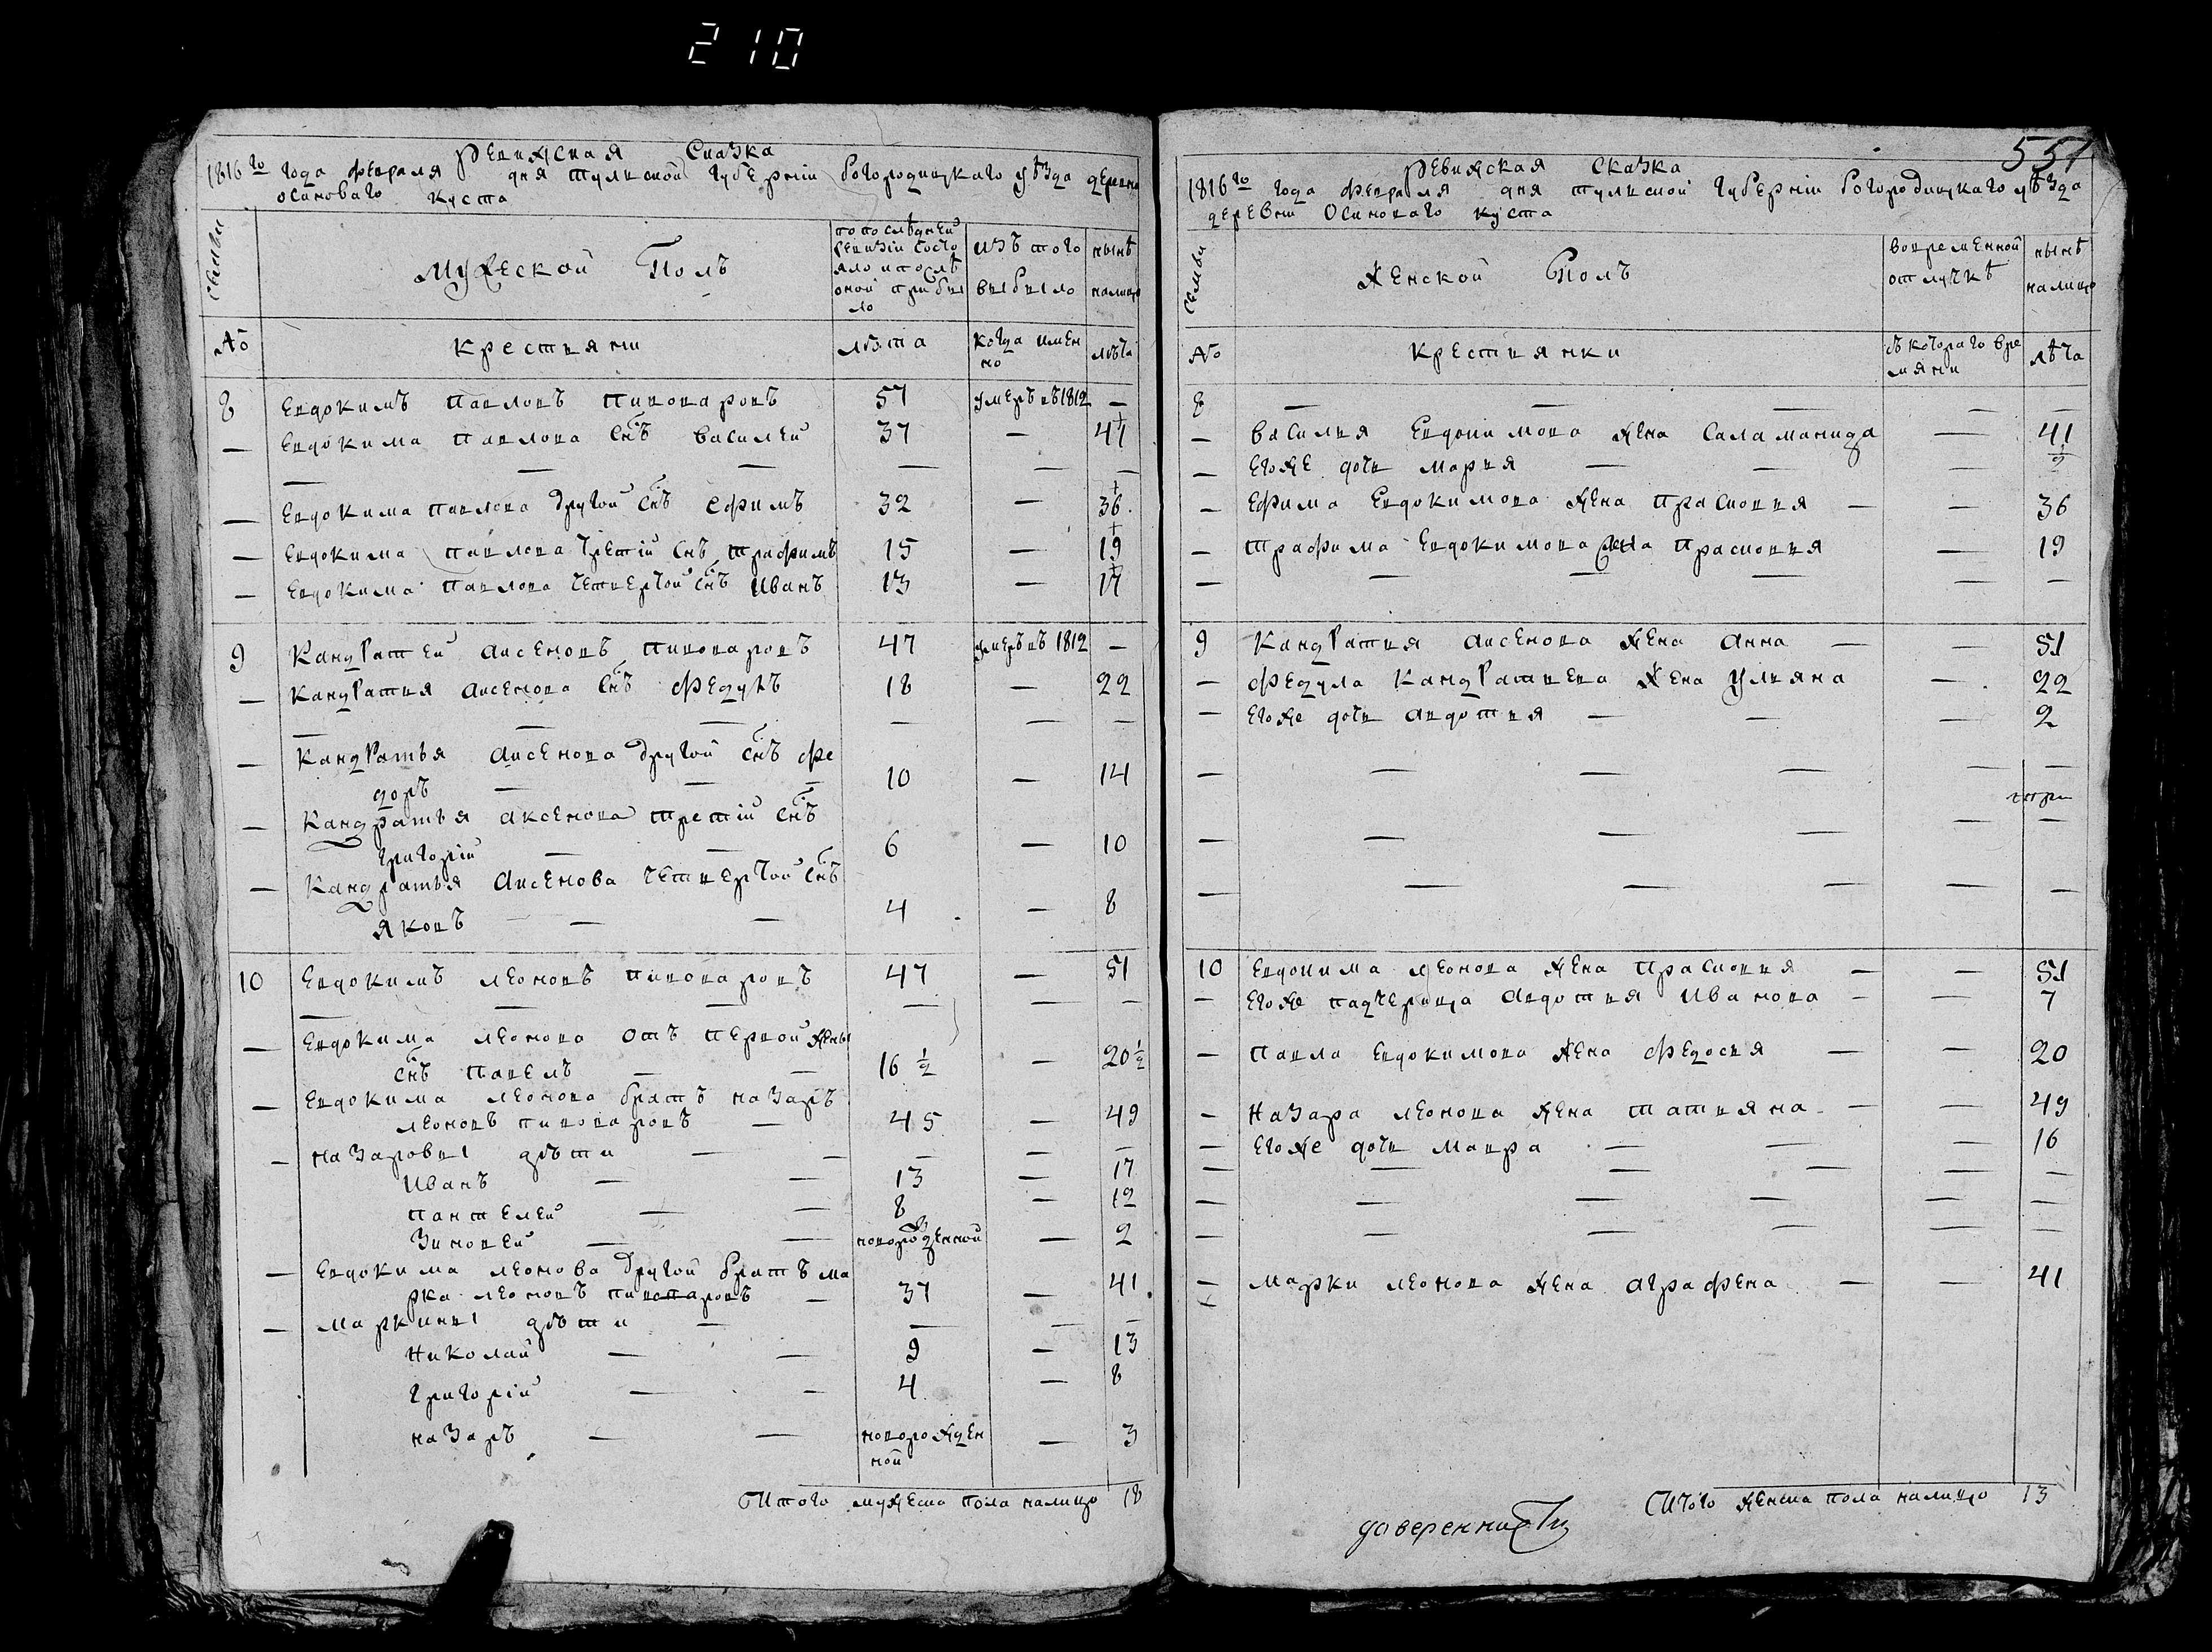 210
Ревижская Сказка
1816го года февраля дня тульской губернии богородицкаго уѣзда деревни
осиноваго куста
Семьи
Мужеской Полъ
по послѣдней
ревизіи состо
яло и послѣ
оной прибы
ло
изъ того
выбыло
нынѣ
налицо
№
крестьяни
лѣта
когда имен
но
лѣта
8 Евдокимъ Павловъ Пивоваровъ 57 умеръ въ 1812 —
— Евдокима Павлова снъ Василей 37 — 41
— — — — — —
— Евдокима павлова другой снъ Ефимъ 32 — 36
— Евдокима павлова третій снъ трафимъ 15 — 19
— Евдокима павлова четвертой снъ Иванъ 13 — 17
9 Кандратей Аксеновъ пивоваровъ 47 умеръ въ 1812 —
— Кандратья Аксенова снъ Федулъ 18 — 22
— — — — — —
— Кандратья Аксенова другой снъ Фе
доръ — — 10 — 14
— Кандратья Аксенова третій снъ
григорій — — 6 — 10
— Кандратья Аксенова четвертой снъ
Яковъ — — 4 — 8
10 Евдокимъ леоновъ пивоваровъ 47 — 51
— — — — — —
— Евдокима леонова отъ первой жены
снъ павелъ — — 16 1/2 — 20 1/2
— Евдокима леонова братъ назаръ
леоновъ пивоваровъ — 45 — 49
— назаровы дѣти — — — — —
Иванъ — — 13 — 17
пантелей — — 8 — 12
Зиновей — — новорожденной — 2
— Евдокима леонова другой братъ ма
рка леоновъ пивоваровъ — 37 — 41
— маркины дѣти — — — —
Николай — — 9 — 13
григорій — — 4 — 8
назаръ — — новорожден
ной — 3
Итого мужеска пола налицо 18
551
Ревижская Сказка
1816го года февраля дня тульской губерніи богородицкаго уѣзда
деревни Осиноваго куста
Семьи
Женской Полъ
вовременной
отлучкѣ
нынѣ
налицо
№
Крестьянки
съ котораго вре
мяни
лѣта
8 — — — — —
— Василья Евдокимова жена Саламанида — 41
— Егоже дочь марья — — — 1/2
— Ефима Евдокимова жена прасковья — — 36
— трафима Евдокимова жена прасковья — 19
— — — — — —
9 Кандратья Аксенова жена Анна — — 51
— Федула Кандратьева жена Ульяна — 22
— Егоже дочь Авдотья — — — 2
— — — — — —
— — — — — —
— — — — — —
10 Евдокима леонова жена прасковья — — 51
— Егоже падчерица Авдотья Иванова — — 7
— павла Евдокимова жена федосья — — 20
— назара леонова жена татьяна — — 49
— Егоже дочь мавра — — — 16
— — — — — —
— — — — — —
— — — — —
— марки леонова жена Аграфена — — 41
Итого женска пола налицо 13
доверенности